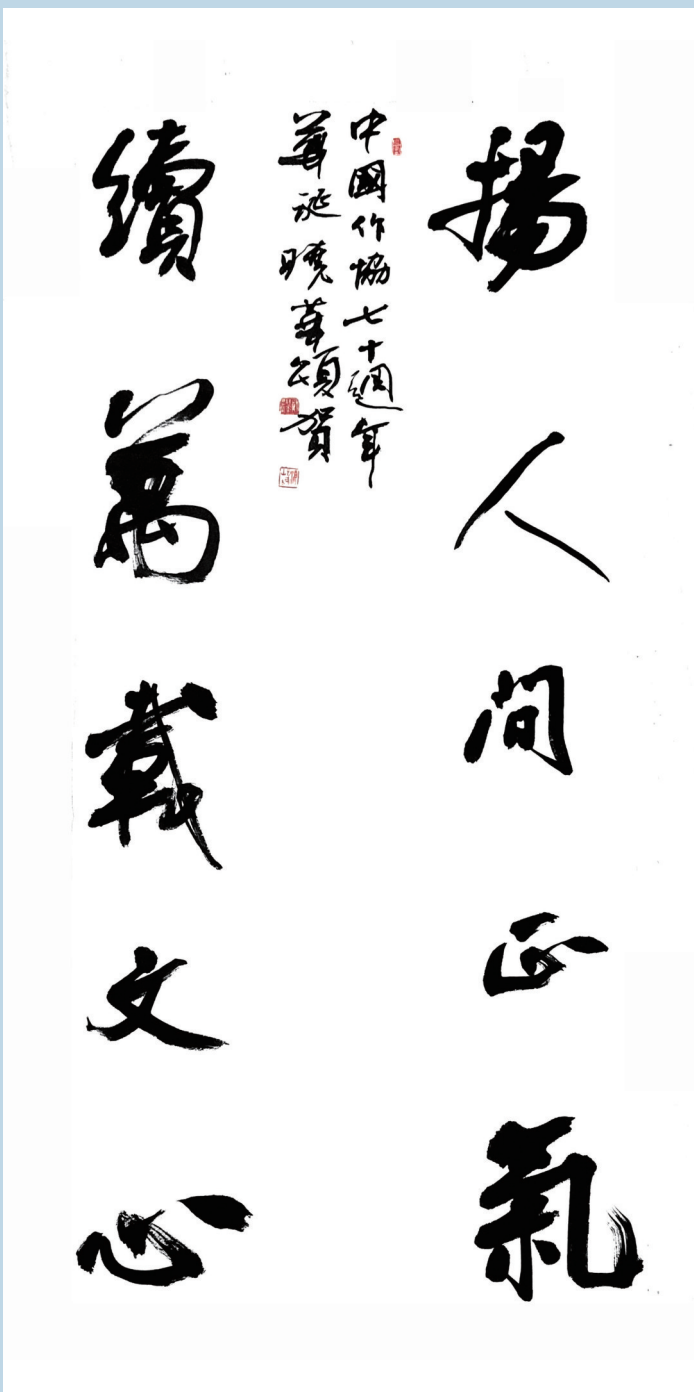 揚人間正氣
中國作協七十週年
華誕曉華頌賀
續萬載文心